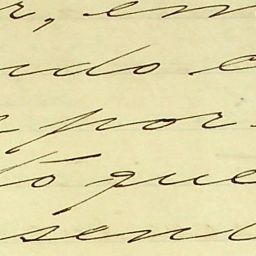 r, em
ndo e
por
tó que
send